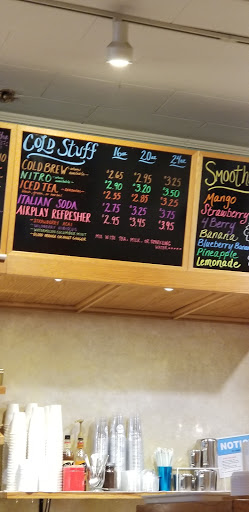 COLD Stuff 16oz 20oz 24oz
COLD BREW $2.65 $2.95 $3.25
NITRO $2.90 $3.20 $3.50
ICED TEA $2.55 $2.85 $3.25
ITALIAN SODA $2.75 $3.25 $3.75
AIRPLAY REFRESHER $2.95 $3.45 $3.95
MIX WITH TEA, MILK, OR SPARKLING WATER
Smooth
Mango
Strawberry
4 Berry
Banana
Blueberry Banana
Pineapple
Lemonade
NOTI